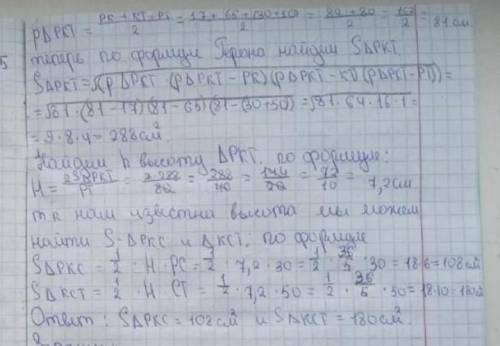 pΔPKT = (PK + KT + PT)/2 = (17 + 65 + (30+50))/2 = (82 + 80)/2 = 162/2 = 81 см
теперь по формуле Герона найдём SΔPKT.
SΔPKT = √(pΔPKT · (pΔPKT − PK)(pΔPKT − KT)(pΔPKT − PT)) =
= √81 · (81 − 17)(81 − 65)(81 − (30+50)) = √81 · 64 · 16 · 1 =
= 9 · 8 · 4 = 288 см².
Найдём h высоту ΔPKT. по формуле:
H = 2SΔPKT/PT = 2·288/80 = 288/40 = 144/20 = 72/10 = 7,2 см
тк нам известна высота мы можем
найти S · ΔPKC и ΔKCT. по формуле
SΔPKC = 1/2 · H · PC = 1/2 · 7,2 · 30 = 1/2 · 36/5 · 30 = 18·6 = 108 см
SΔKCT = 1/2 · H CT = 1/2 · 7,2 · 50 = 1/2 · 36/5 · 50 = 18·10 = 180
Ответ: SΔPKC = 108 см² и SΔKCT = 180 см².